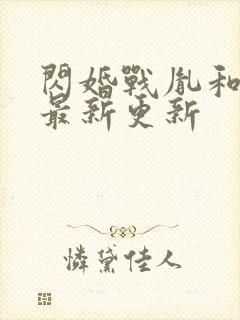 閃婚戰胤和
最新更新
憐黛佳人